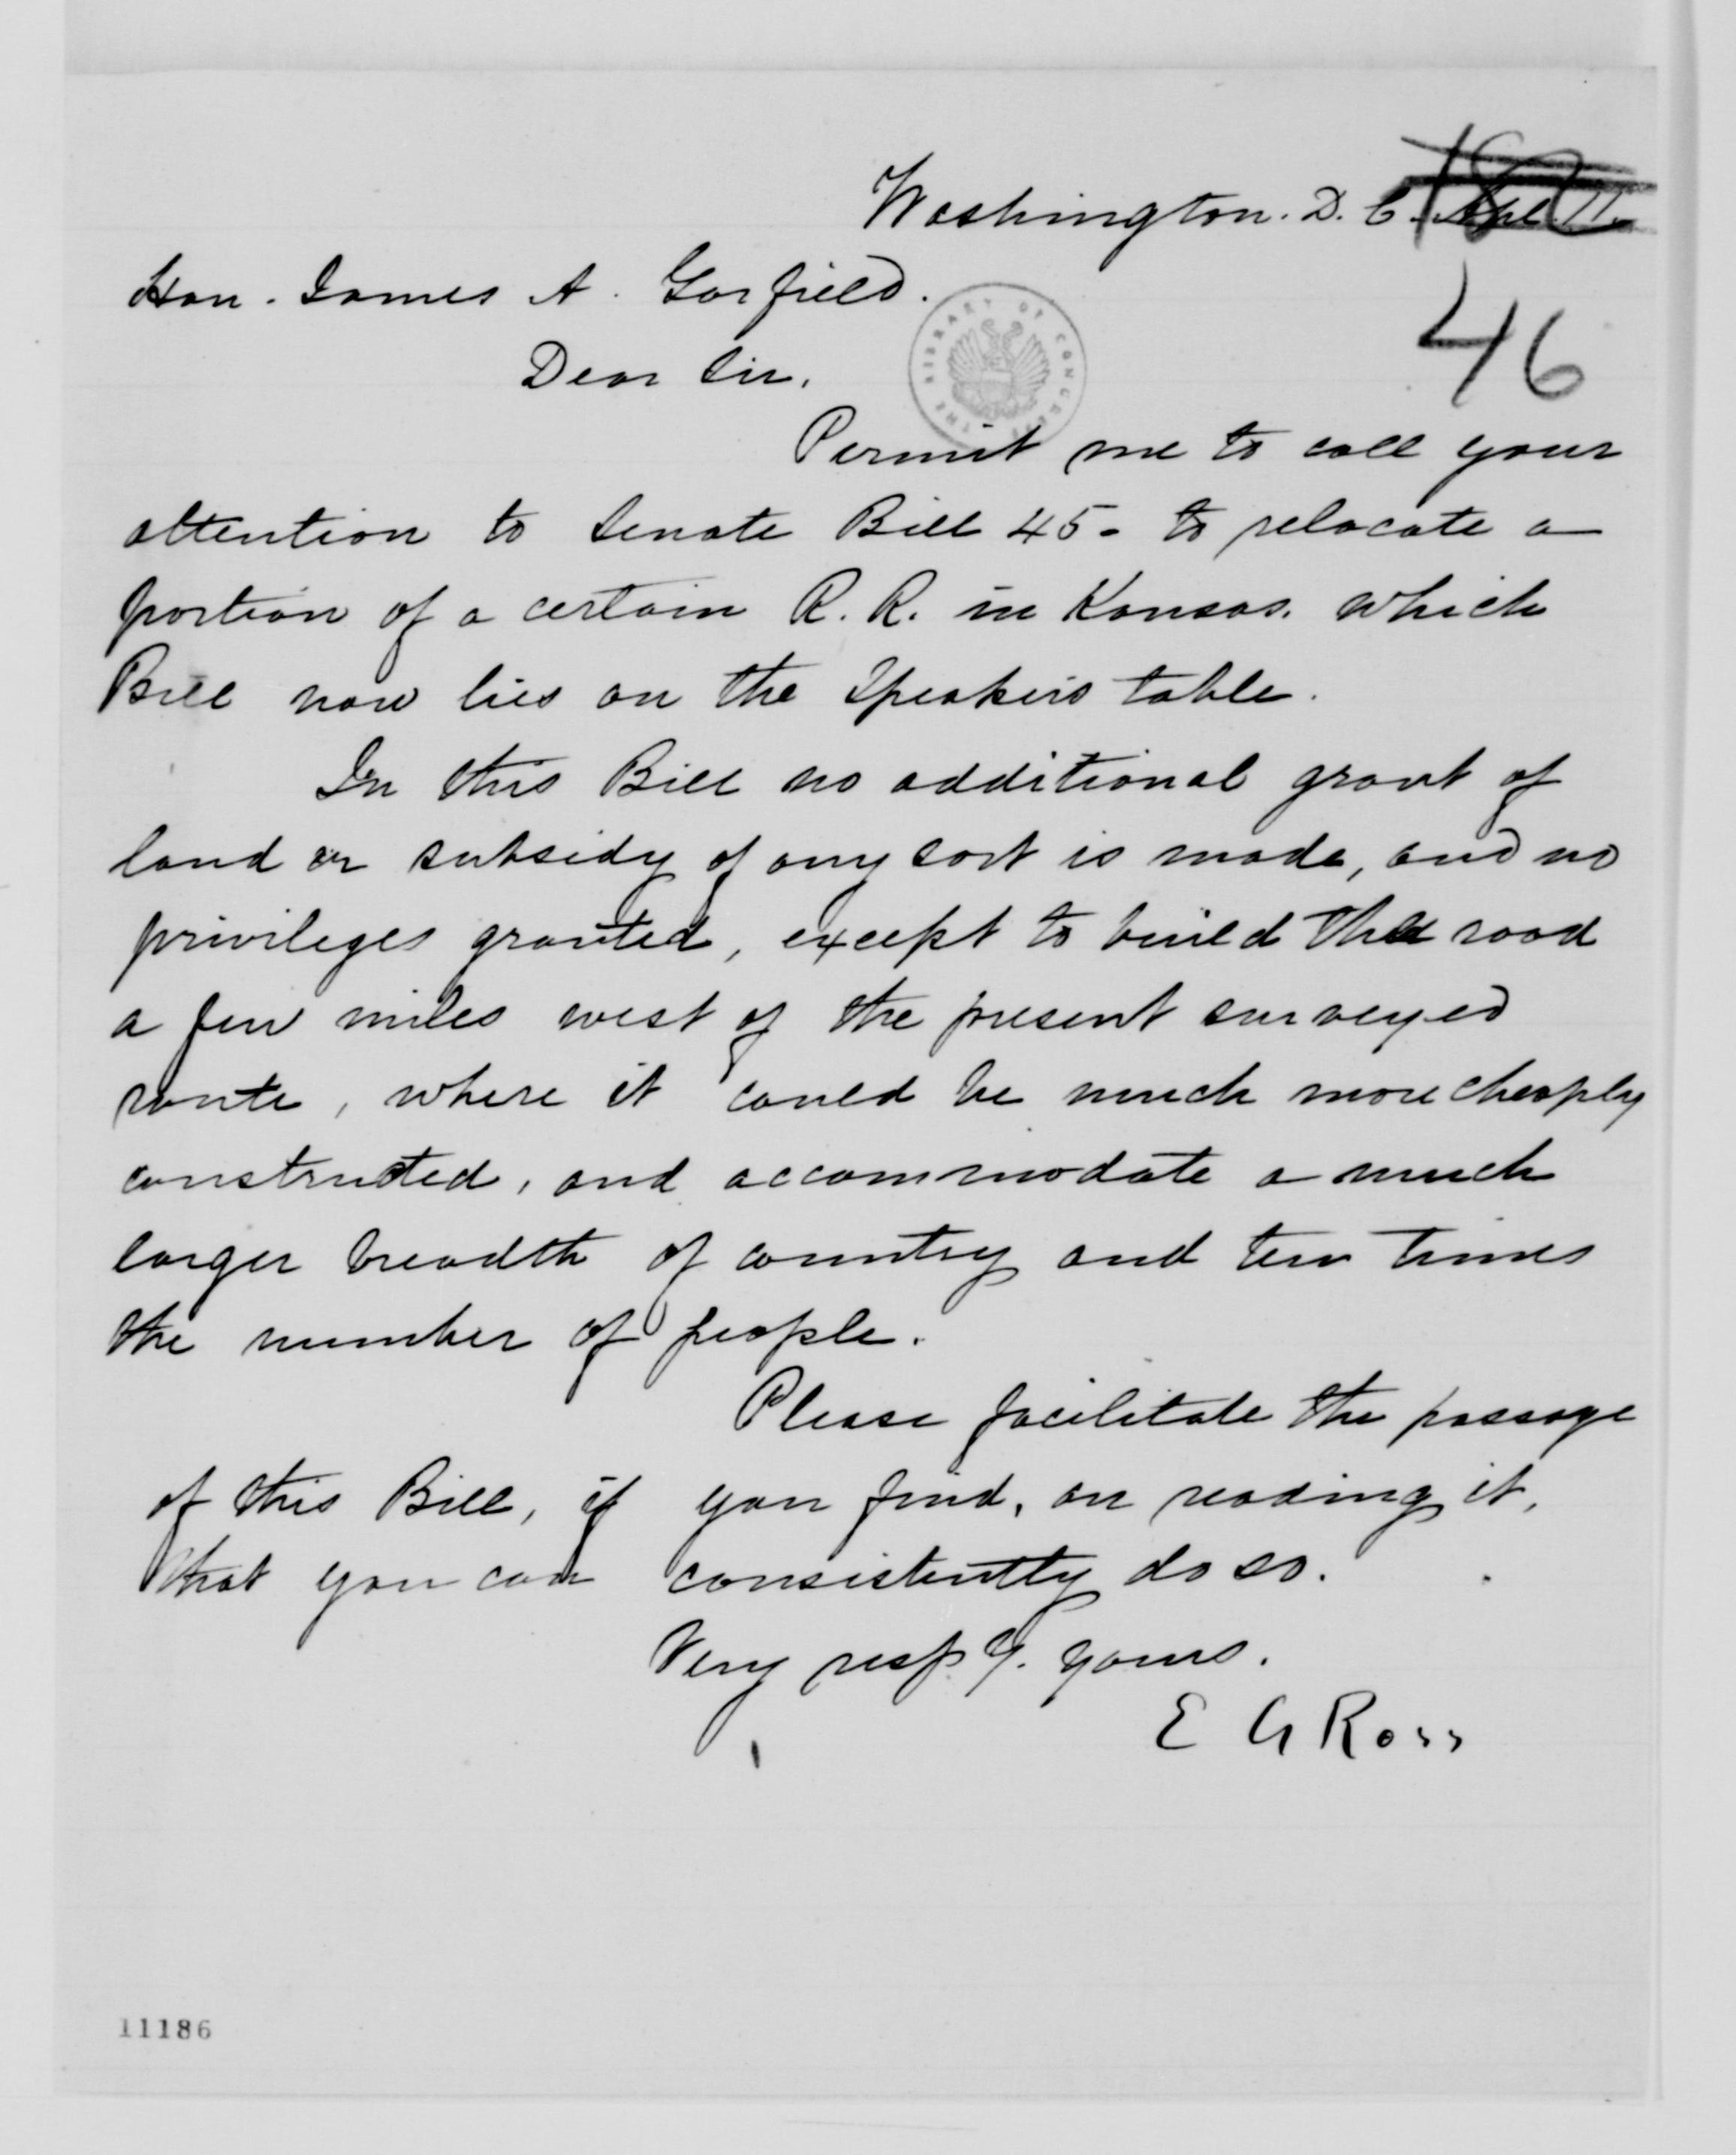 Washington. D. C. Apl 11
Hon. James A. Garfield.
46
Dear Sir.
THE LIBRARY OF CONGRESS
Permit me to call your
attention to Senate Bill 45 - to relocate a
portion of a certain R. R. in Kansas. which
Bill now lies on the Speakers table.
In this Bill no additional grant of
land or subsidy of any sort is made, and no
privileges granted, except to build the road
a few miles west of the present surveyed
route, where it could be much more cheaply
constructed, and accommodate a much
larger breadth of country and ten times
the number of people.
Please facilitate the passage
of this Bill, if you find, on reading it,
that you can consistently do so.
Very resp'y. yours.
E G Ross
11186